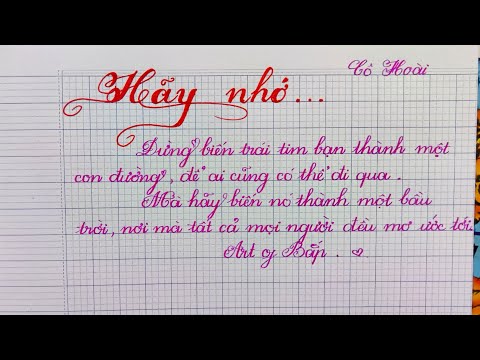 Cô Hoài
Hãy nhớ...
Đừng biến trái tim bạn thành một
con đường, để ai cũng có thể đi qua.
Mà hãy biến nó thành một bầu
trời, nơi mà tất cả mọi người đều mơ ước tới.
Art of Bắp.